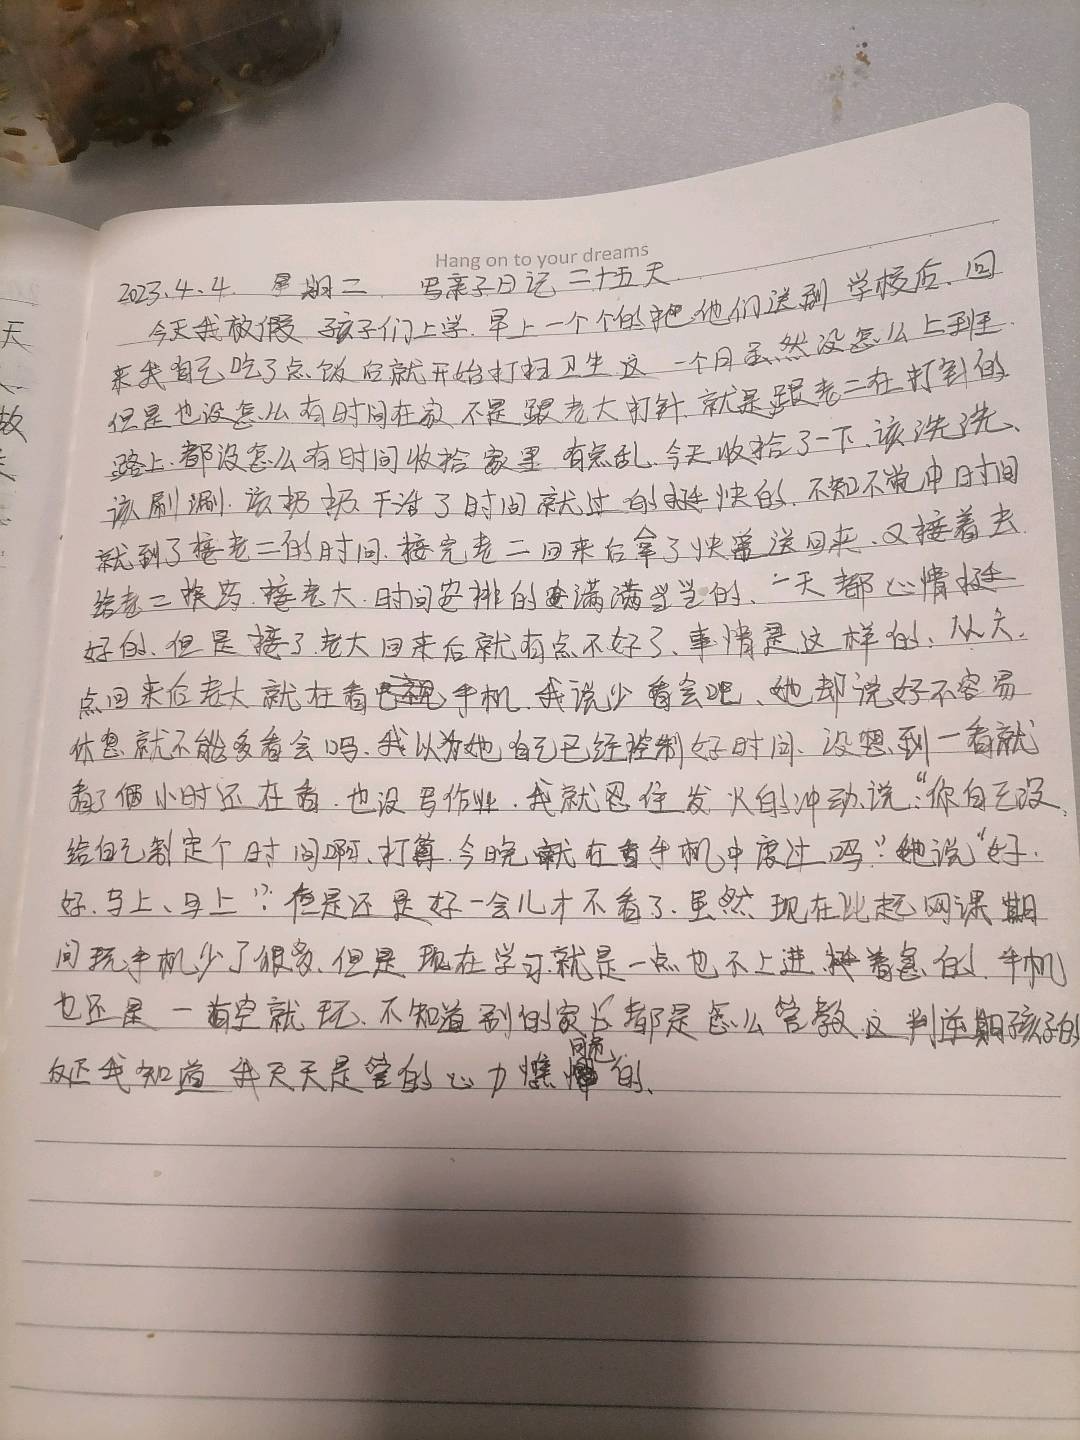 Hang on to your dreams
2023.4.4. 星期二 写亲子日记二十五天
今天我放假 孩子们上学.早上一个个的把他们送到 学校后.回
来我自己吃了点饭后就开始打扫卫生 这 一个月虽然没怎么上班.
但是也没怎么有时间在家 不是跟老大打针.就是跟老二在打针的
路上.都没怎么有时间收拾家里 有点乱.今天收拾了一下.该洗洗、
该刷涮.该扔扔.干活了时间就过的挺快的.不知不觉中时间
就到了接老二的时间.接完老二回来后拿了快递送回来.又接着去
给老二换药.接老大.时间安排的满满当当的、一天都心情挺
好的、但是接了老大回来后就有点不好了、事情是这样的、从六.
点回来后老大就在看手机.我说少看会吧、她却说好不容易
休息就不能多看会吗.我以为她自己已经控制好时间.没想到一看就
看了俩小时还在看.也没写作业.我就忍住发火的冲动.说:“你自己没
给自己制定个时间啊、打算今晚就在看手机中度过吗?”她说“好.
好.马上、马上”.但是还是好一会儿才不看了.虽然现在比起网课期
间玩手机少了很多.但是现在学习就是一点也不上进.挺着急的.手机
也还是一有空就玩.不知道别的家长都是怎么管教这判逆期孩子的
反正我知道我天天是管的心力憔悴的.
天
故